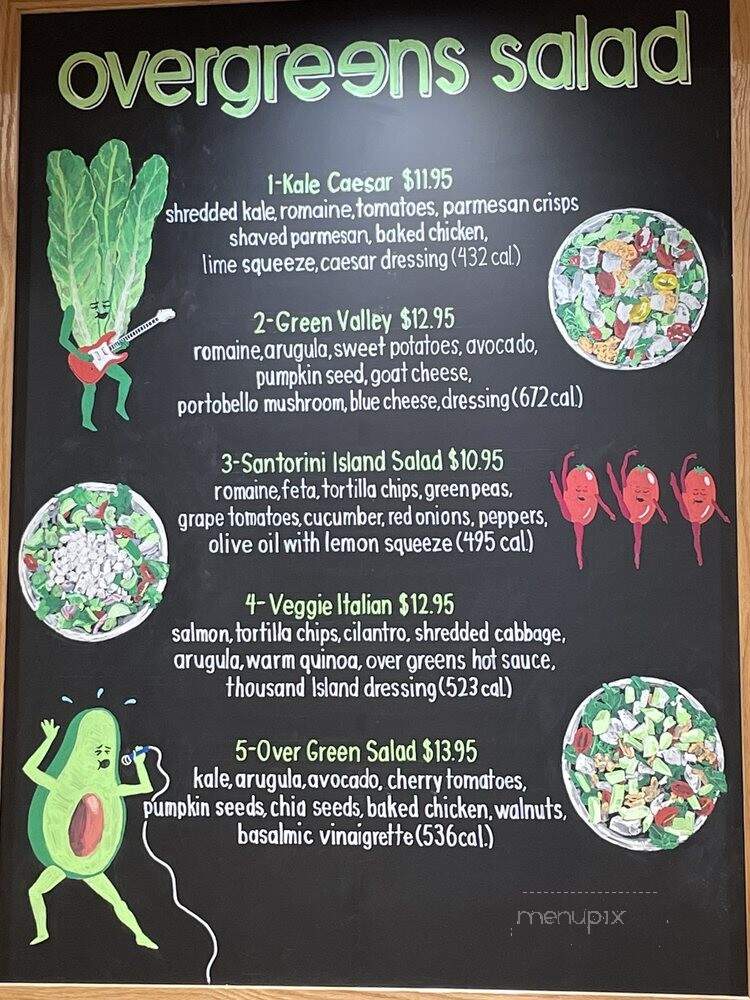 overgreens salad
1-Kale Caesar $11.95
shredded kale, romaine, tomatoes, parmesan crisps
shaved parmesan, baked chicken,
lime squeeze, caesar dressing (432 cal.)
2-Green Valley $12.95
romaine, arugula, sweet potatoes, avocado,
pumpkin seed, goat cheese,
portobello mushroom, blue cheese, dressing (672 cal.)
3-Santorini Island Salad $10.95
romaine, feta, tortilla chips, green peas,
grape tomatoes, cucumber, red onions, peppers,
olive oil with lemon squeeze (495 cal.)
4-Veggie Italian $12.95
salmon, tortilla chips, cilantro, shredded cabbage,
arugula, warm quinoa, over greens hot sauce,
thousand Island dressing (523 cal.)
5-Over Green Salad $13.95
kale, arugula, avocado, cherry tomatoes,
pumpkin seeds, chia seeds, baked chicken, walnuts,
basalmic vinaigrette (536 cal.)
menupix